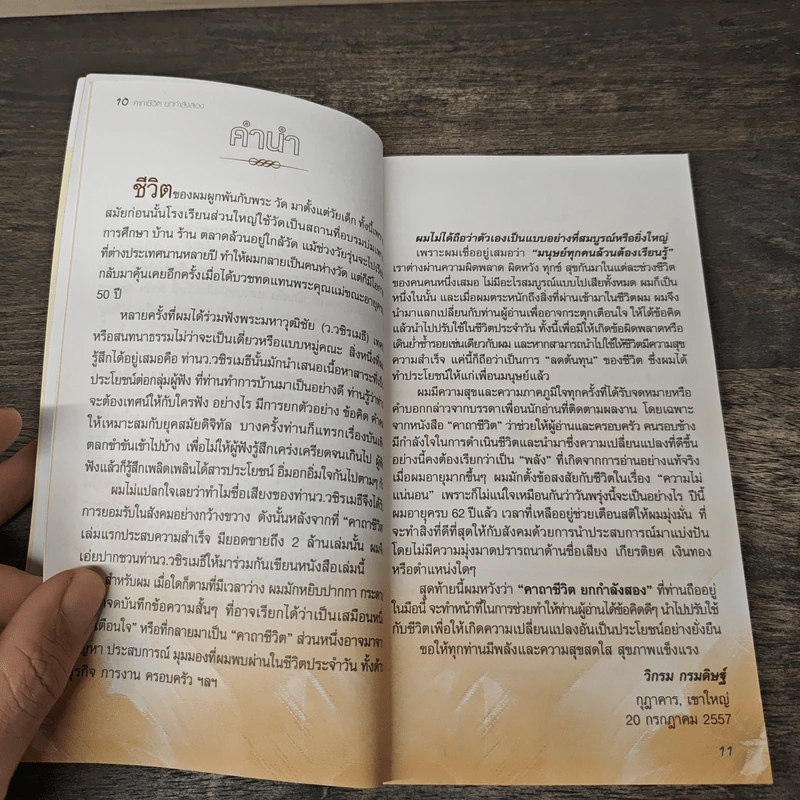 10 คาถาชีวิต ยกกำลังสอง
คำนำ
ชีวิตของผมผูกพันกับพระ วัด มาตั้งแต่วัยเด็ก ทั้งนี้เพราะ
สมัยก่อนนั้นโรงเรียนส่วนใหญ่ใช้วัดเป็นสถานที่อบรมบ่มเพาะ
การศึกษา บ้าน ร้าน ตลาดล้วนอยู่ใกล้วัด แม้ช่วงวัยรุ่นจะไป
ที่ต่างประเทศนานหลายปี ทำให้ผมกลายเป็นคนห่างวัด แต่ก็มีโอกาส
กลับมาคุ้นเคยอีกครั้งเมื่อได้บวชทดแทนพระคุณแม่ขณะอายุครบ
50 ปี
หลายครั้งที่ผมได้ร่วมฟังพระมหาวุฒิชัย (ว.วชิรเมธี)
หรือสนทนาธรรมไม่ว่าจะเป็นเดี่ยวหรือแบบหมู่คณะ สิ่งหนึ่งที่ผม
รู้สึกได้อยู่เสมอคือ ท่านว.วชิรเมธีนั้นมักนำเสนอเนื้อหาสาระที่เป็น
ประโยชน์ต่อกลุ่มผู้ฟัง ที่ท่านทำการบ้านมาเป็นอย่างดี ท่านรู้ว่า
จะต้องเทศน์ให้กับใครฟัง อย่างไร มีการยกตัวอย่าง ข้อคิด
ให้เหมาะสมกับยุคสมัยดิจิทัล บางครั้งท่านก็แทรกเรื่องบันเทิง
ตลกขำขันเข้าไปบ้าง เพื่อไม่ให้ผู้ฟังรู้สึกเคร่งเครียดจนเกินไป
ฟังแล้วก็รู้สึกเพลิดเพลินได้สารประโยชน์ อิ่มอกอิ่มใจกันไปตามๆ กัน
ผมไม่แปลกใจเลยว่าทำไมชื่อเสียงของท่านว.วชิรเมธีจึงได้รับ
การยอมรับในสังคมอย่างกว้างขวาง ดังนั้นหลังจากที่ “คาถาชีวิต”
เล่มแรกประสบความสำเร็จ มียอดขายถึง 2 ล้านเล่มนั้น ผมจึง
เอ่ยปากชวนท่านว.วชิรเมธีให้มาร่วมกันเขียนหนังสือเล่มนี้
สำหรับผม เมื่อใดก็ตามที่มีเวลาว่าง ผมมักหยิบปากกา
จดบันทึกข้อความสั้นๆ ที่อาจเรียกได้ว่าเป็นเสมือนหนึ่ง
เตือนใจ” หรือที่กลายมาเป็น “คาถาชีวิต” ส่วนหนึ่งอาจมาจาก
ประสบการณ์ มุมมองที่ผมพบผ่านในชีวิตประจำวัน ทั้งด้าน
ธุรกิจ การงาน ครอบครัว ฯลฯ
ผมไม่ได้ถือว่าตัวเองเป็นแบบอย่างที่สมบูรณ์หรือยิ่งใหญ่
เพราะผมเชื่ออยู่เสมอว่า “มนุษย์ทุกคนล้วนต้องเรียนรู้”
เราต่างผ่านความผิดพลาด ผิดหวัง ทุกข์ สุขกันมาในแต่ละช่วงชีวิต
ของคนคนหนึ่งเสมอ ไม่มีอะไรสมบูรณ์แบบไปเสียทั้งหมด ผมก็เป็น
หนึ่งในนั้น และเมื่อผมตระหนักถึงสิ่งที่ผ่านเข้ามาในชีวิตผม ผมจึง
นำมาแลกเปลี่ยนกับท่านผู้อ่านเพื่ออาจกระตุกเตือนใจ ให้ได้ข้อคิด
แล้วนำไปปรับใช้ในชีวิตประจำวัน ทั้งนี้เพื่อมิให้เกิดข้อผิดพลาดหรือ
เดินย่ำซ้ำรอยเช่นเดียวกับผม และหากสามารถนำไปใช้ให้ชีวิตมีความสุข
ความสำเร็จ แค่นี้ก็ถือว่าเป็นการ “ลดต้นทุน” ของชีวิต ซึ่งผมได้
ทำประโยชน์ให้แก่เพื่อนมนุษย์แล้ว
ผมมีความสุขและความภาคภูมิใจทุกครั้งที่ได้รับจดหมายหรือ
คำบอกกล่าวจากบรรดาเพื่อนนักอ่านที่ติดตามผลงาน โดยเฉพาะ
จากหนังสือ “คาถาชีวิต” ว่าช่วยให้ผู้อ่านและครอบครัว คนรอบข้าง
มีกำลังใจในการดำเนินชีวิตและนำมาซึ่งความเปลี่ยนแปลงที่ดีขึ้น
อย่างนี้คงต้องเรียกว่าเป็น “พลัง” ที่เกิดจากการอ่านอย่างแท้จริง
เมื่อผมอายุมากขึ้นๆ ผมมักตั้งข้อสงสัยกับชีวิตในเรื่อง “ความไม่
แน่นอน” เพราะก็ไม่แน่ใจเหมือนกันว่าวันพรุ่งนี้จะเป็นอย่างไร ปีนี้
ผมอายุครบ 62 ปีแล้ว เวลาที่เหลืออยู่ช่วยเตือนสติให้ผมมุ่งมั่น ที่
จะทำสิ่งที่ดีที่สุดให้กับสังคมด้วยการนำประสบการณ์มาแบ่งปัน
โดยไม่มีความมุ่งมาดปรารถนาด้านชื่อเสียง เกียรติยศ เงินทอง
หรือตำแหน่งใดๆ
สุดท้ายนี้ผมหวังว่า “คาถาชีวิต ยกกำลังสอง” ที่ท่านถืออยู่
ในมือนี้ จะทำหน้าที่ในการช่วยทำให้ท่านผู้อ่านได้ข้อคิดดีๆ นำไปปรับใช้
กับชีวิตเพื่อให้เกิดความเปลี่ยนแปลงอันเป็นประโยชน์อย่างยั่งยืน
ขอให้ทุกท่านมีพลังและความสุขสดใส สุขภาพแข็งแรง
วิกรม กรมดิษฐ์
กุฎาคาร, เขาใหญ่
20 กรกฎาคม 2557
11